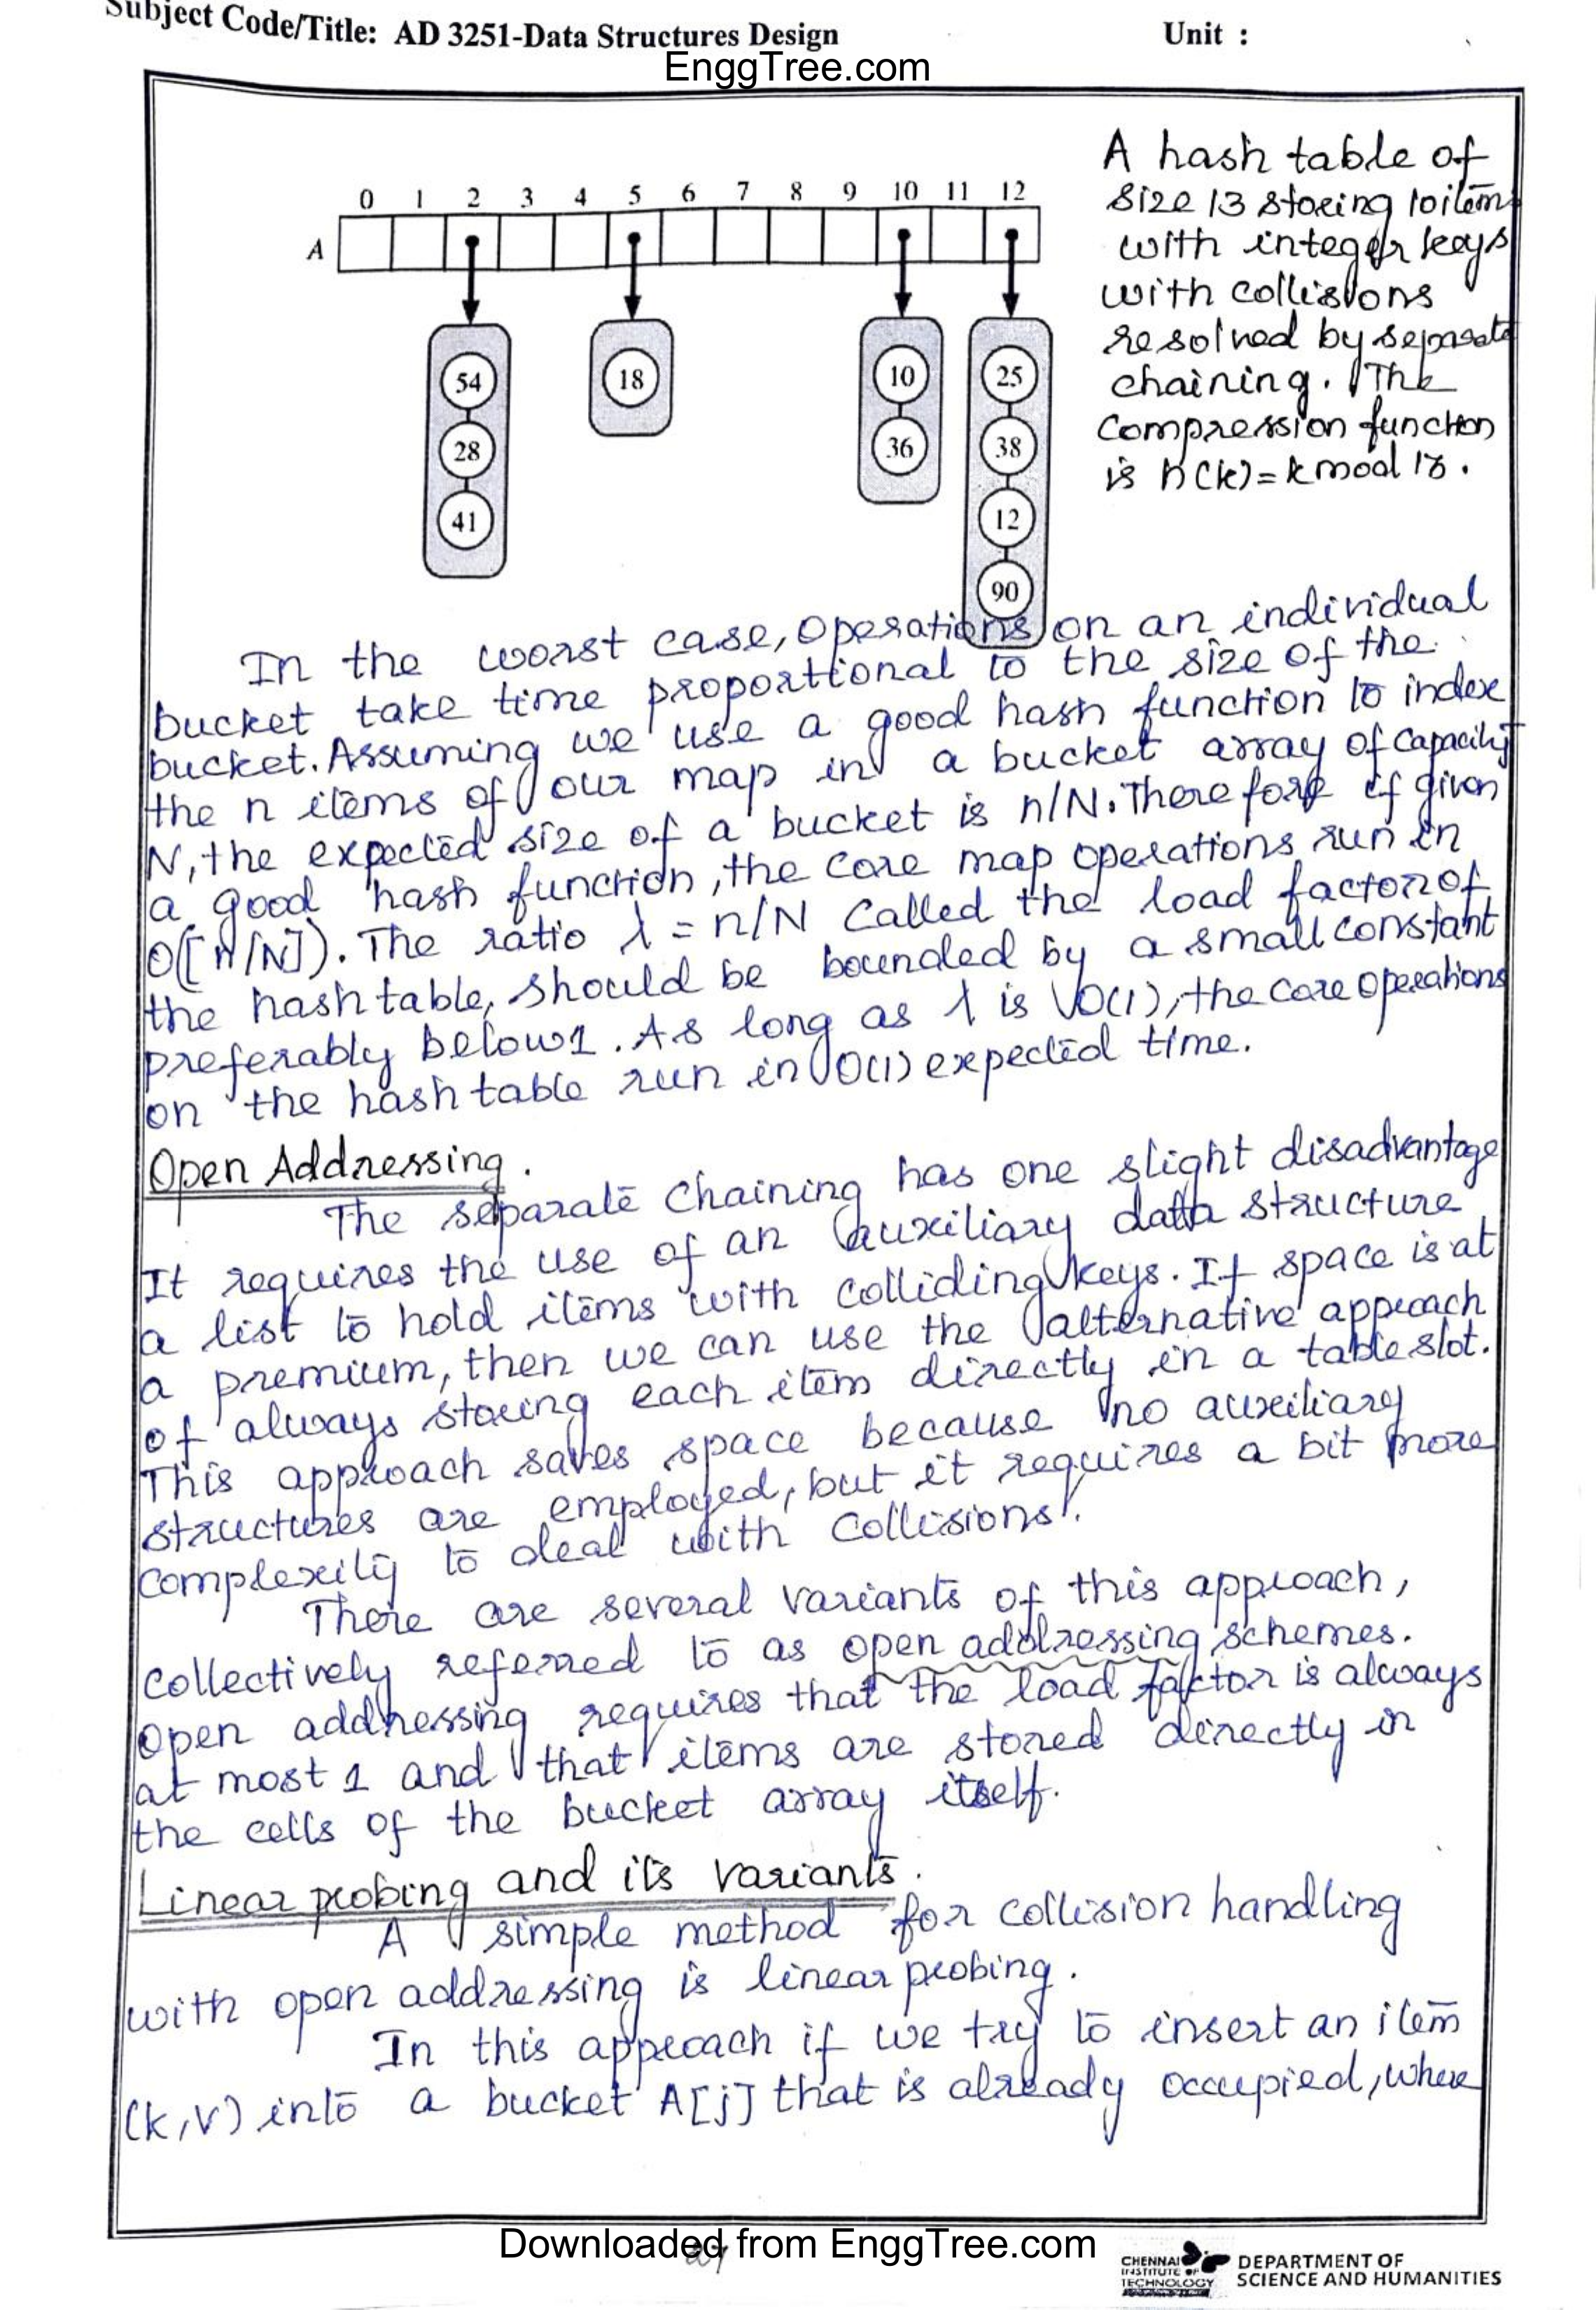 Subject Code/Title: AD 3251-Data Structures Design Unit :
EnggTree.com
0 1 2 3 4 5 6 7 8 9 10 11 12
A
54
28
41
18
10
36
25
38
12
90
A hash table of
size 13 storing 10 item
with integer keys
with collisions
resolved by separate
chaining. The
compression function
is h(k)=k mod 13.
In the worst case, operations on an individual
bucket take time proportional to the size of the
bucket. Assuming we use a good hash function to index
the n items of our map in a bucket array of capacity
N, the expected size of a bucket is n/N. Therefore if given
a good hash function, the core map operations run in
O([n/N]). The ratio λ = n/N called the load factor of
the hash table, should be bounded by a small constant
preferably below 1. As long as λ is O(1), the core operations
on the hash table run in O(1) expected time.
Open Addressing.
The separate chaining has one slight disadvantage
It requires the use of an auxiliary data structure
a list to hold items with colliding keys. If space is at
a premium, then we can use the alternative approach
of always storing each item directly in a table slot.
This approach saves space because no auxiliary
structures are employed, but it requires a bit more
complexity to deal with collisions.
There are several variants of this approach,
collectively referred to as open addressing schemes.
Open addressing requires that the load factor is always
at most 1 and that items are stored directly in
the cells of the bucket array itself.
Linear probing and its variants.
A simple method for collision handling
with open addressing is linear probing.
In this approach if we try to insert an item
(k,v) into a bucket A[j] that is already occupied, where
Downloaded from EnggTree.com
CHENNAI
INSTITUTE OF
TECHNOLOGY
DEPARTMENT OF
SCIENCE AND HUMANITIES